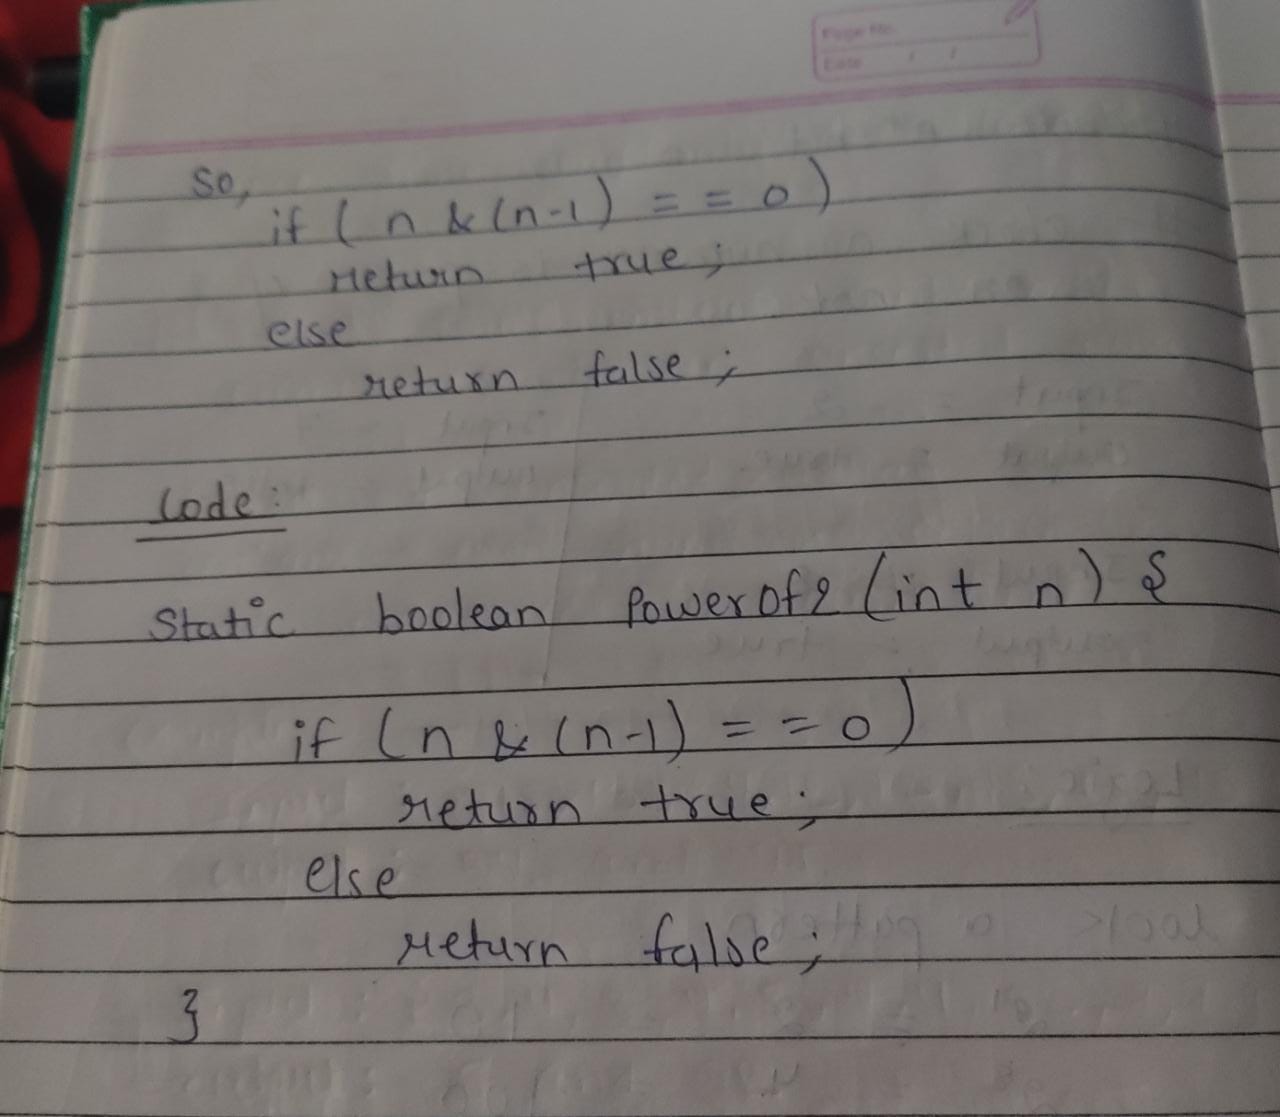 Page No.
Date / /
So,
if ( n & (n-1) == 0 )
return true ;
else
return false ;
Code :
Static boolean Powerof2 (int n) {
if (n & (n-1) == 0 )
return true ;
else
return false ;
}